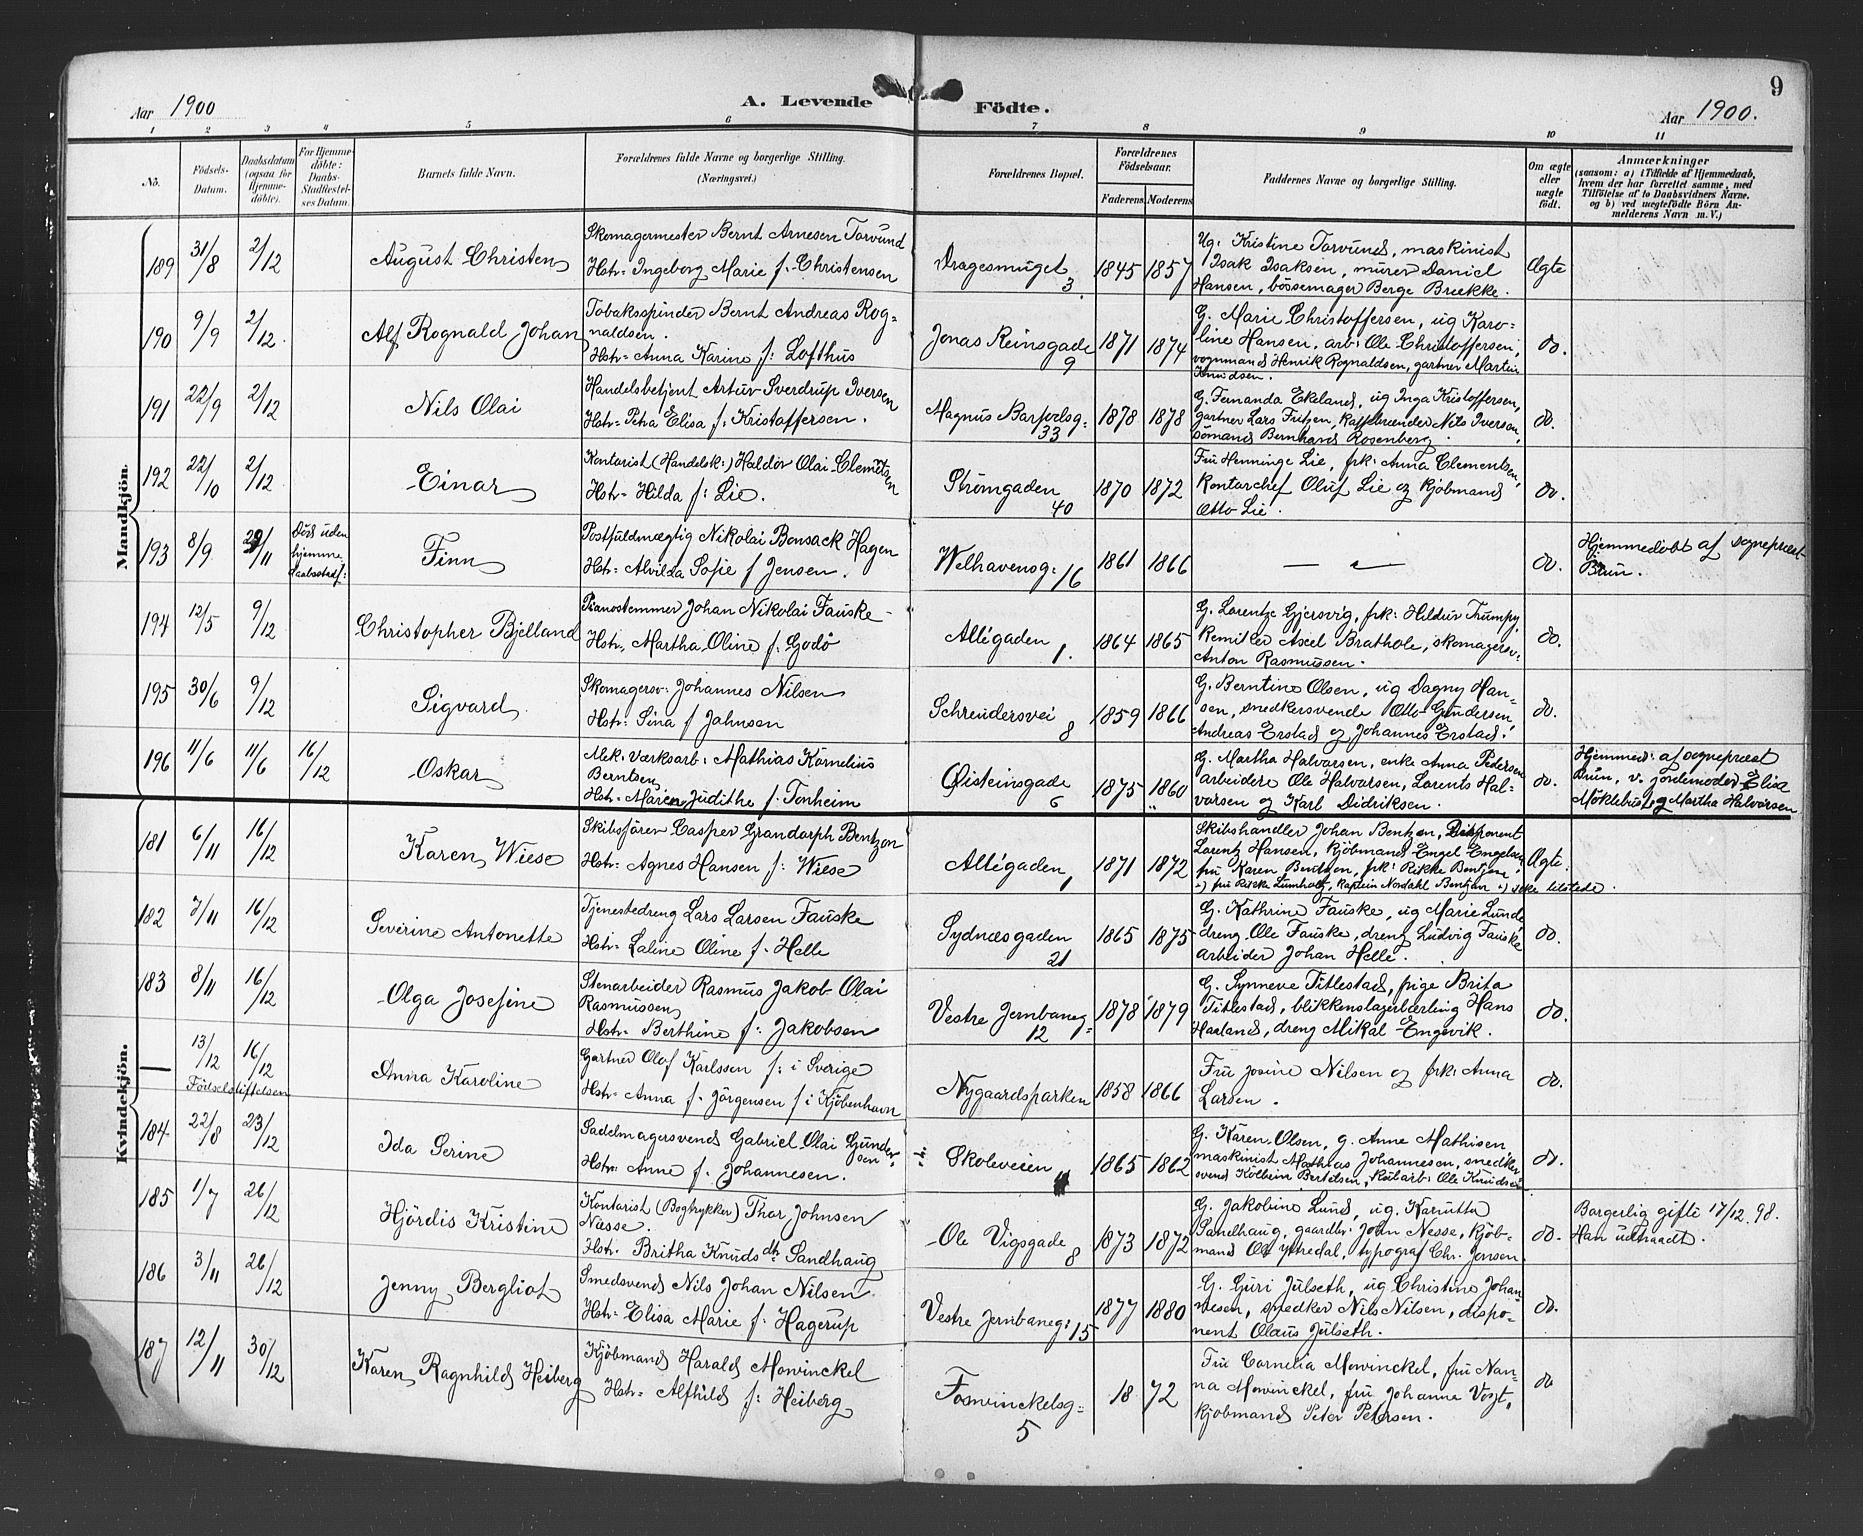 9
Aar 1900
A. Levende Födte.
Aar 1900.
1 2 3 4 5 6 7 8 9 10 11
No.
Födsels-Datum.
Daabsdatum (ogsaa for Hjemme-döbte).
For Hjemme-döbte: Daabs-Stadfæstel-ses Datum.
Barnets fulde Navn.
Forældrenes fulde Navne og borgerlige Stilling. (Næringsvei.)
Forældrenes Bopæl.
Forældrenes Födselsaar.
Faderens Moderens
Faddernes Navne og borgerlige Stilling.
Om ægte eller uægte födt.
Anmærkninger
(saasom: a) i Tilfælde af Hjemmedaab,
hvem der har forrettet samme, med
Tilföielse af to Daabsvidners Navne.
og b) ved uægtefödte Börn An-
melderens Navn m. V.)
Mandkjön.
189 31/8 2/12 August Christen
Skomagermester Bernt Arnesen Torvund
Hstr. Ingeborg Marie f. Christensen
Dragesmuget 3 1845 1857
Ug. Kristine Torvund, maskinist
Isak Isaksen, murer Daniel
Hansen, bössemager Berge Brække.
Ægte
190 9/9 2/12. Alf Rognald Johan
Tobaksspinder Bernt Andreas Rog=
naldsen.
Hstr. Anna Karine f: Lofthus
Jonas Reinsgade 9 1871 1874
G. Marie Christoffersen, ug Karo-
line Hansen, arb: Ole Christoffersen,
vognmand Henrik Rognaldsen, gartner Martin
Knudsen.
do.
191 22/9 2/12 Nils Olai
Handelsbetjent Artur Sverdrup Iversen
Hstr. Petra Elisa f. Kristoffersen.
Magnus Barfodsg: 33 1878 1878
G. Fernanda Ekeland, ug Inga Kristoffersen,
gartner Lars Fritzen, Kaffebrænder Nils Iversen,
sömand Bernhard Rosenberg.
do.
192 22/10 2/12 Einar
Kontorist (Handelsk:) Haldor Olai Clemetsen
Hstr. Hilda f: Lie.
Strömgaden 40 1870 1872
Fru Henninge Lie, frk: Anna Clementsen,
Kontorchef Oluf Lie og Kjöbmand
Otto Lie.
do.
193 8/9 29/11 Död uden hjemme daabsstadf: Finn
Postfuldmægtig Nikolai Bonsack Hagen
Hstr. Alvilda Sofie f Jensen.
Welhavensg: 16 1861 1866
do.
Hjemmedöbt af sognepræst
Brun.
194 12/5 9/12 Christopher Bjelland
Pianostemmer Johan Nikolai Fauske
Hstr. Martha Oline f. Godö
Allégaden 1. 1864 1865
G. Lorentze Gjersvig, frk: Hildur Trumpy,
Kemiker Axel Brathole, skomagersv.
Anton Rasmussen.
do.
195 30/6 9/12 Sigvard
Skomagersv: Johannes Nilsen
Hstr: Sina f Jahnsen
Schreudersvei 8 1859 1866
G. Berntine Olsen, ug Dagny Han-
sen, snedkersvende Otto Gundersen,
Andreas Erstad og Johannes Erstad.
do.
196 11/6 11/6 16/12 Oskar
Mek. værksarb: Mathias Kornelius
Berntsen
Hstr. Maren Judithe f. Tonheim
Øisteinsgade 6 1875 1860
G. Martha Halvarsen, enke Anna Pedersen
arbeidere Ole Halvarsen, Lorents Hal-
varsen og Karl Didriksen.
do.
Hjemmed: af sognepræst
Brun, v. jordemoder Elia
Möklebust og Martha Halvorsen
Kvindekjön.
181 6/11 16/12 Karen Wiese
Skibsförer Casper Grandorph Bentzon
Hstr: Agnes Hansen f: Wiese
Allégaden 1 1871 1872
Skibshandler Johan Bentzon, Disponent
Lorentz Hansen, Kjöbmand Engel Engelsen
fru Karen Bentzon, frk: Rikke Bentzon
fru Rikke Lumholtz, Kaptein Nordahl Bentzon ikke tilstede.
Ægte.
182 7/11 16/12 Severine Antonette
Tjenestedreng Lars Larsen Fauske
Hstr. Laline Oline f. Helle
Sydnæsgaden 21 1865 1875
G. Kathrine Fauske, ug Marie Lunde
dreng Ole Fauske, dreng Ludvig Fauske
arbeider Johan Helle.
do.
183 8/11 16/12 Olga Josefine
Stenarbeider Rasmus Jakob Olai
Rasmussen
Hstr. Berthine f: Jakobsen
Vestre Jernbaneg= 12 1878 1879
G. Synneve Titlestad, pige Brita
Titlestad, blikkenslagerlærling Hans
Haaland, dreng Mikal Engevik.
do.
— 13/12 16/12 Födselsstiftelsen Anna Karoline
Gartner Olof Karlssen f: i Sverige
Hstr. Anna f. Jörgensen f i Kjöbenhavn
Nygaardsparken 1858 1866
Fru Josine Nilsen og frk: Anna
Larsen.
do.
184 22/8 23/12 Ida Serine
Sadelmagersvend Gabriel Olai Gunder-
sen
Hstr: Anne f. Johannesen.
Skoleveien 1865 1862
G. Karen Olsen, g. Anne Mathisen,
maskinist Mathias Johannesen, snedker
svend Kolbein Bertelsen, skibarb: Ole Knudsen
do.
185 1/7 26/12 Hjördis Kristine
Kontorist (Bogtrykker) Thor Johnsen
Næsse.
Hstr. Britha Knudsdtr Sandhaug
Ole Vigsgade 8 1873 1872
G. Jakobine Lund, ug. Karutta
Sandhaug, gaardbr: John Nesse, Kjöb-
mand Ole Ytredal, typograf Chr. Jensen.
do.
Borgerlig gifte 17/12 98.
Han udtraadt.
186 3/11 26/12 Jenny Bergliot
Smedsvend Nils Johan Nilsen
Hstr. Elisa Marie f. Hagerup
Vestre Jernbaneg: 15 1877 1880
G. Guri Julseth, ug Christine Johan-
nesen, snedker Nils Nilsen, dispo-
nent Olaus Julseth.
do.
187 12/11 30/12 Karen Ragnhild Heiberg
Kjöbmand Harald Mowinckel
Hstr. Alfhild f: Heiberg
Fosvinckelsg= 5 1872
Fru Cornelia Mowinckel, fru Nan-
na Mowinckel, fru Johanne Vogt,
Kjöbmand Peter Petersen.
do